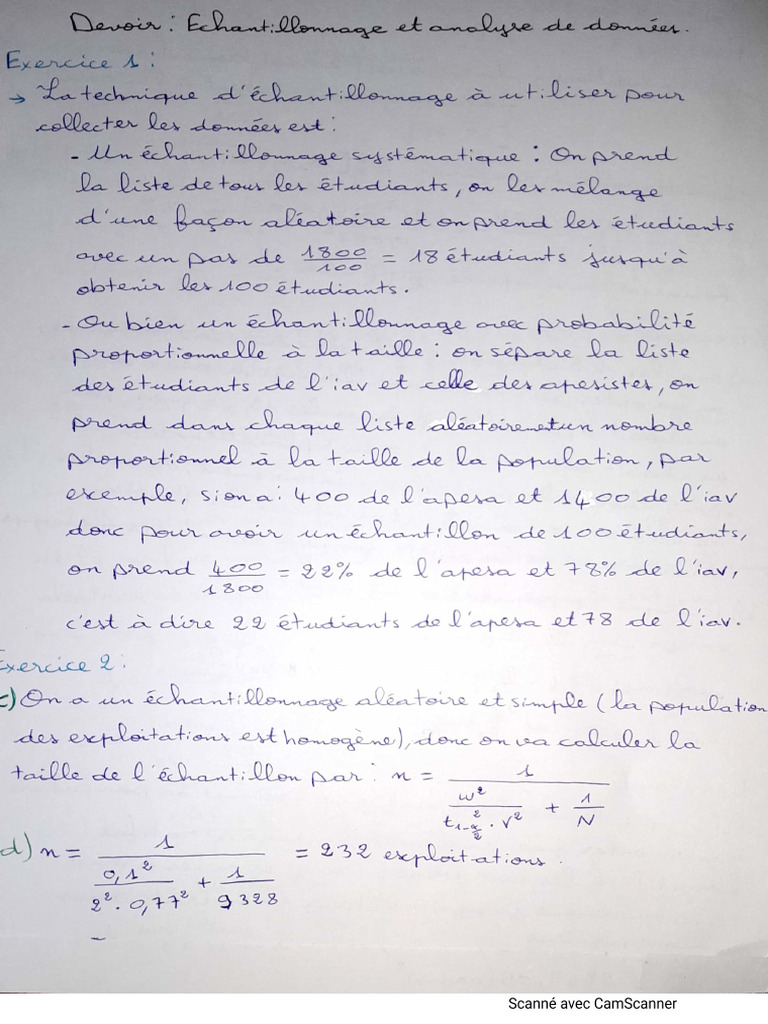 Devoir : Echantillonnage et analyse de données.
Exercice 1 :
→ La technique d'échantillonnage à utiliser pour
collecter les données est :
- Un échantillonnage systématique : On prend
la liste de tous les étudiants, on les mélange
d'une façon aléatoire et on prend les étudiants
avec un pas de 1800/100 = 18 étudiants jusqu'à
obtenir les 100 étudiants.
- Ou bien un échantillonnage avec probabilité
proportionnelle à la taille : on sépare la liste
des étudiants de l'iav et celle des apesistes, on
prend dans chaque liste aléatoirement un nombre
proportionnel à la taille de la population, par
exemple, si on a : 400 de l'apesa et 1400 de l'iav
donc pour avoir un échantillon de 100 étudiants,
on prend 400/1800 = 22% de l'apesa et 78% de l'iav,
c'est à dire 22 étudiants de l'apesa et 78 de l'iav.
Exercice 2 :
c) On a un échantillonnage aléatoire et simple (la population
des exploitations est homogène), donc on va calculer la
taille de l'échantillon par : n = 1 / (w² / (t²1-α/2 . V²) + 1/N)
d) n = 1 / (0,1² / (2² . 0,77²) + 1/9328) = 232 exploitations.
Scanné avec CamScanner